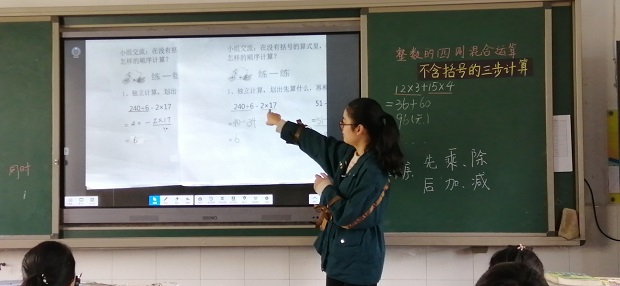 同时
小组交流:在没有括
怎样的顺序计算?
练一练
1、独立计算,划出
240÷6 - 2×17
- 2×17
= 6
小组交流:在没有括号的算式里,
怎样的顺序计算?
练一练
1、独立计算,划出先算什么,再
240÷6 - 2×17
51 -
= 6
整数的四则混合运算
不含括号的三步计算
12×3+15×4
=36+60
=96(元)
先乘、除
后加、减